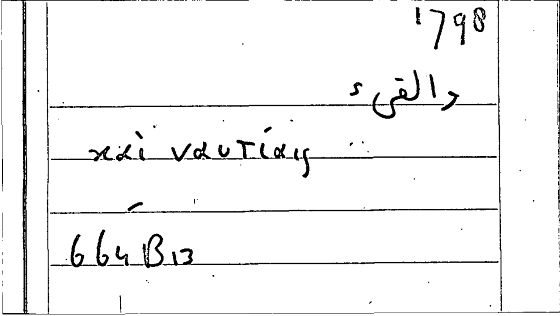 1798
والقىء
καὶ ναυτίας
664 B 13